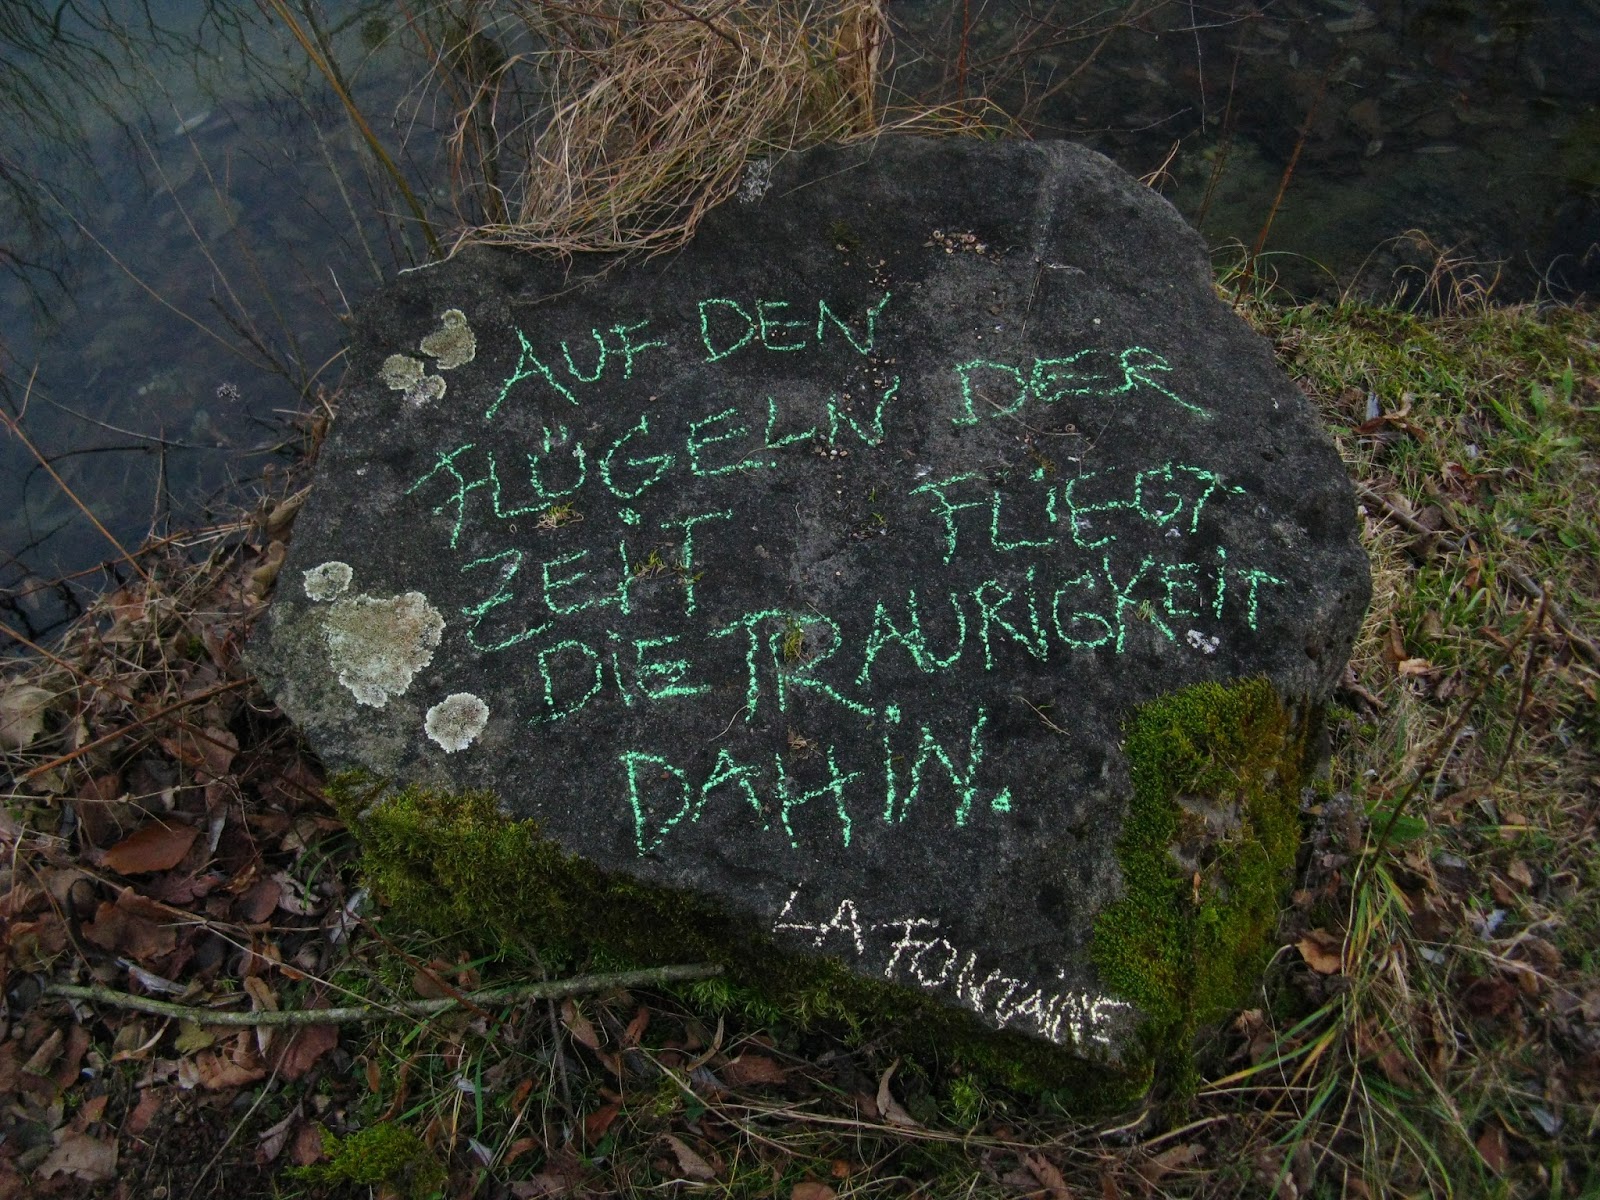 AUF DEN
FLÜGELN DER
ZEIT FLIEGT
DIE TRAURIGKEIT
DAHIN.
LA FONTAINE